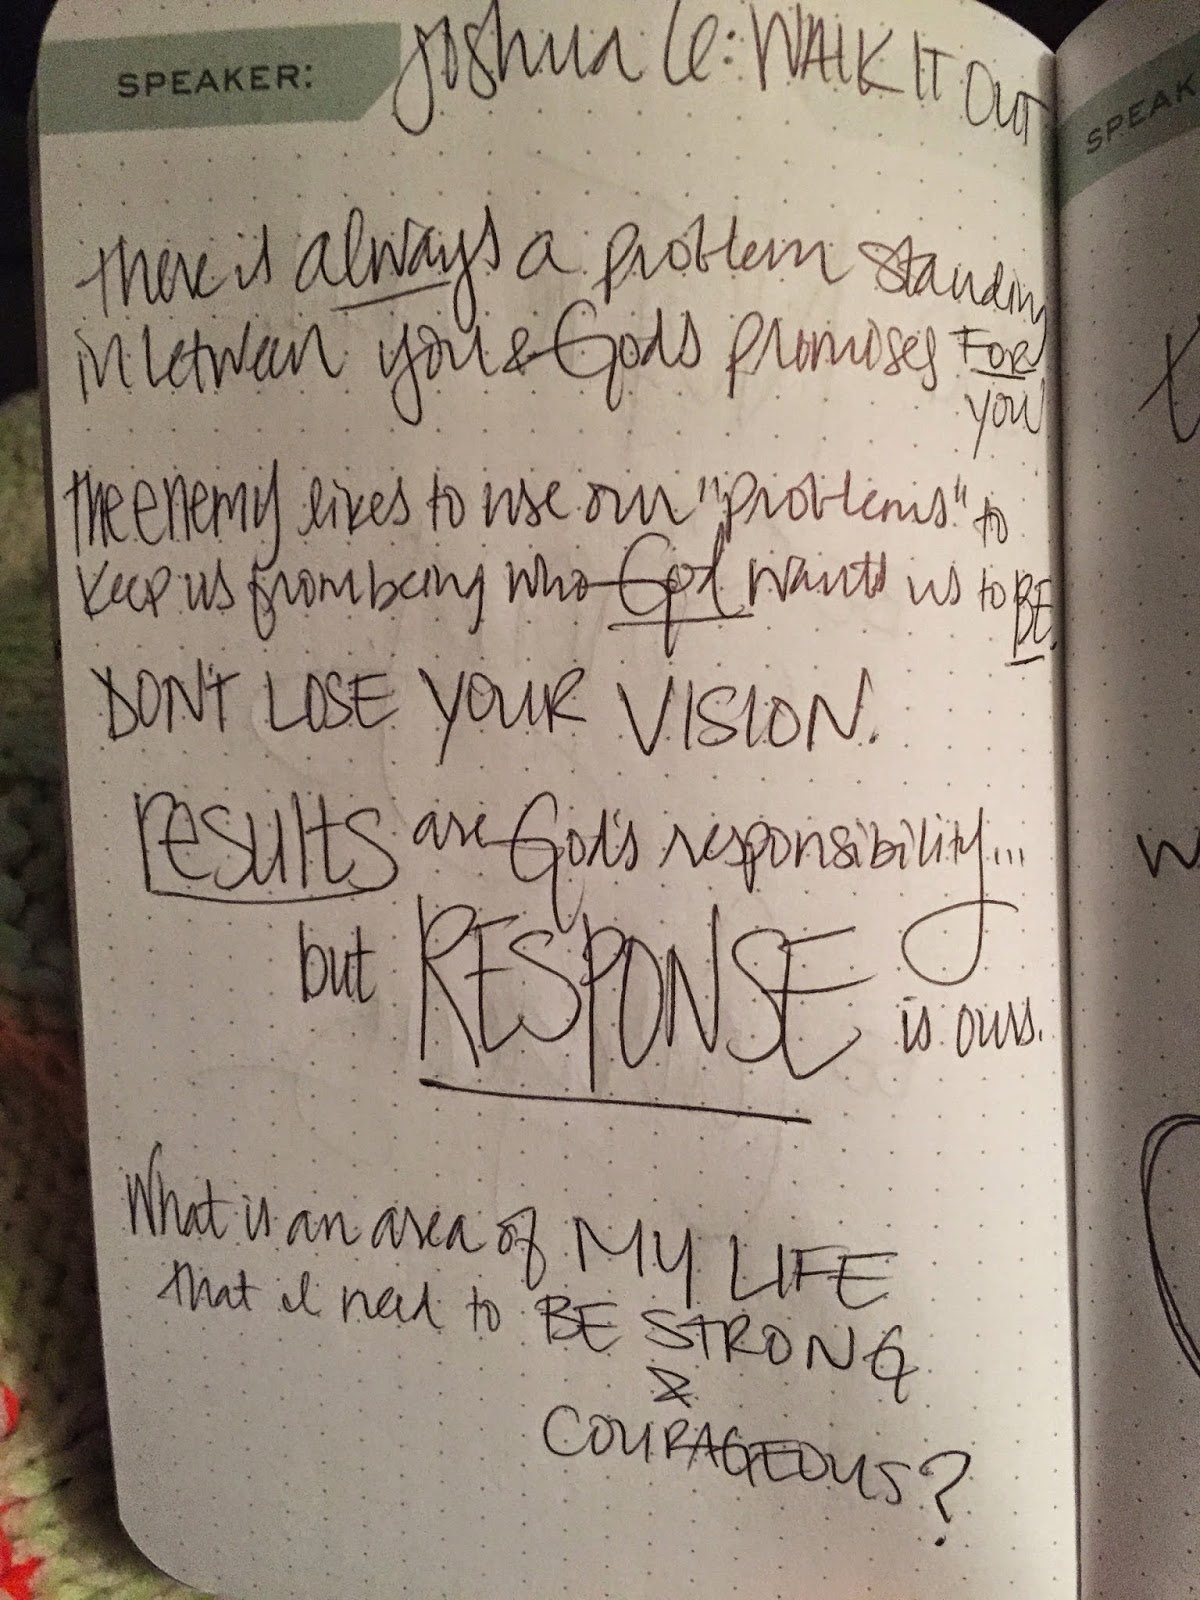 SPEAKER: Joshua 6: WALK IT OUT
there is always a problem standing
in between you & God's promises FOR
you
the enemy likes to use our "problems" to
keep us from being who God wants us to BE.
DON'T LOSE YOUR VISION.
results are God's responsibility...
but RESPONSE is ours.
What is an area of MY LIFE
that I need to BE STRONG
&
COURAGEOUS?
SPEAK